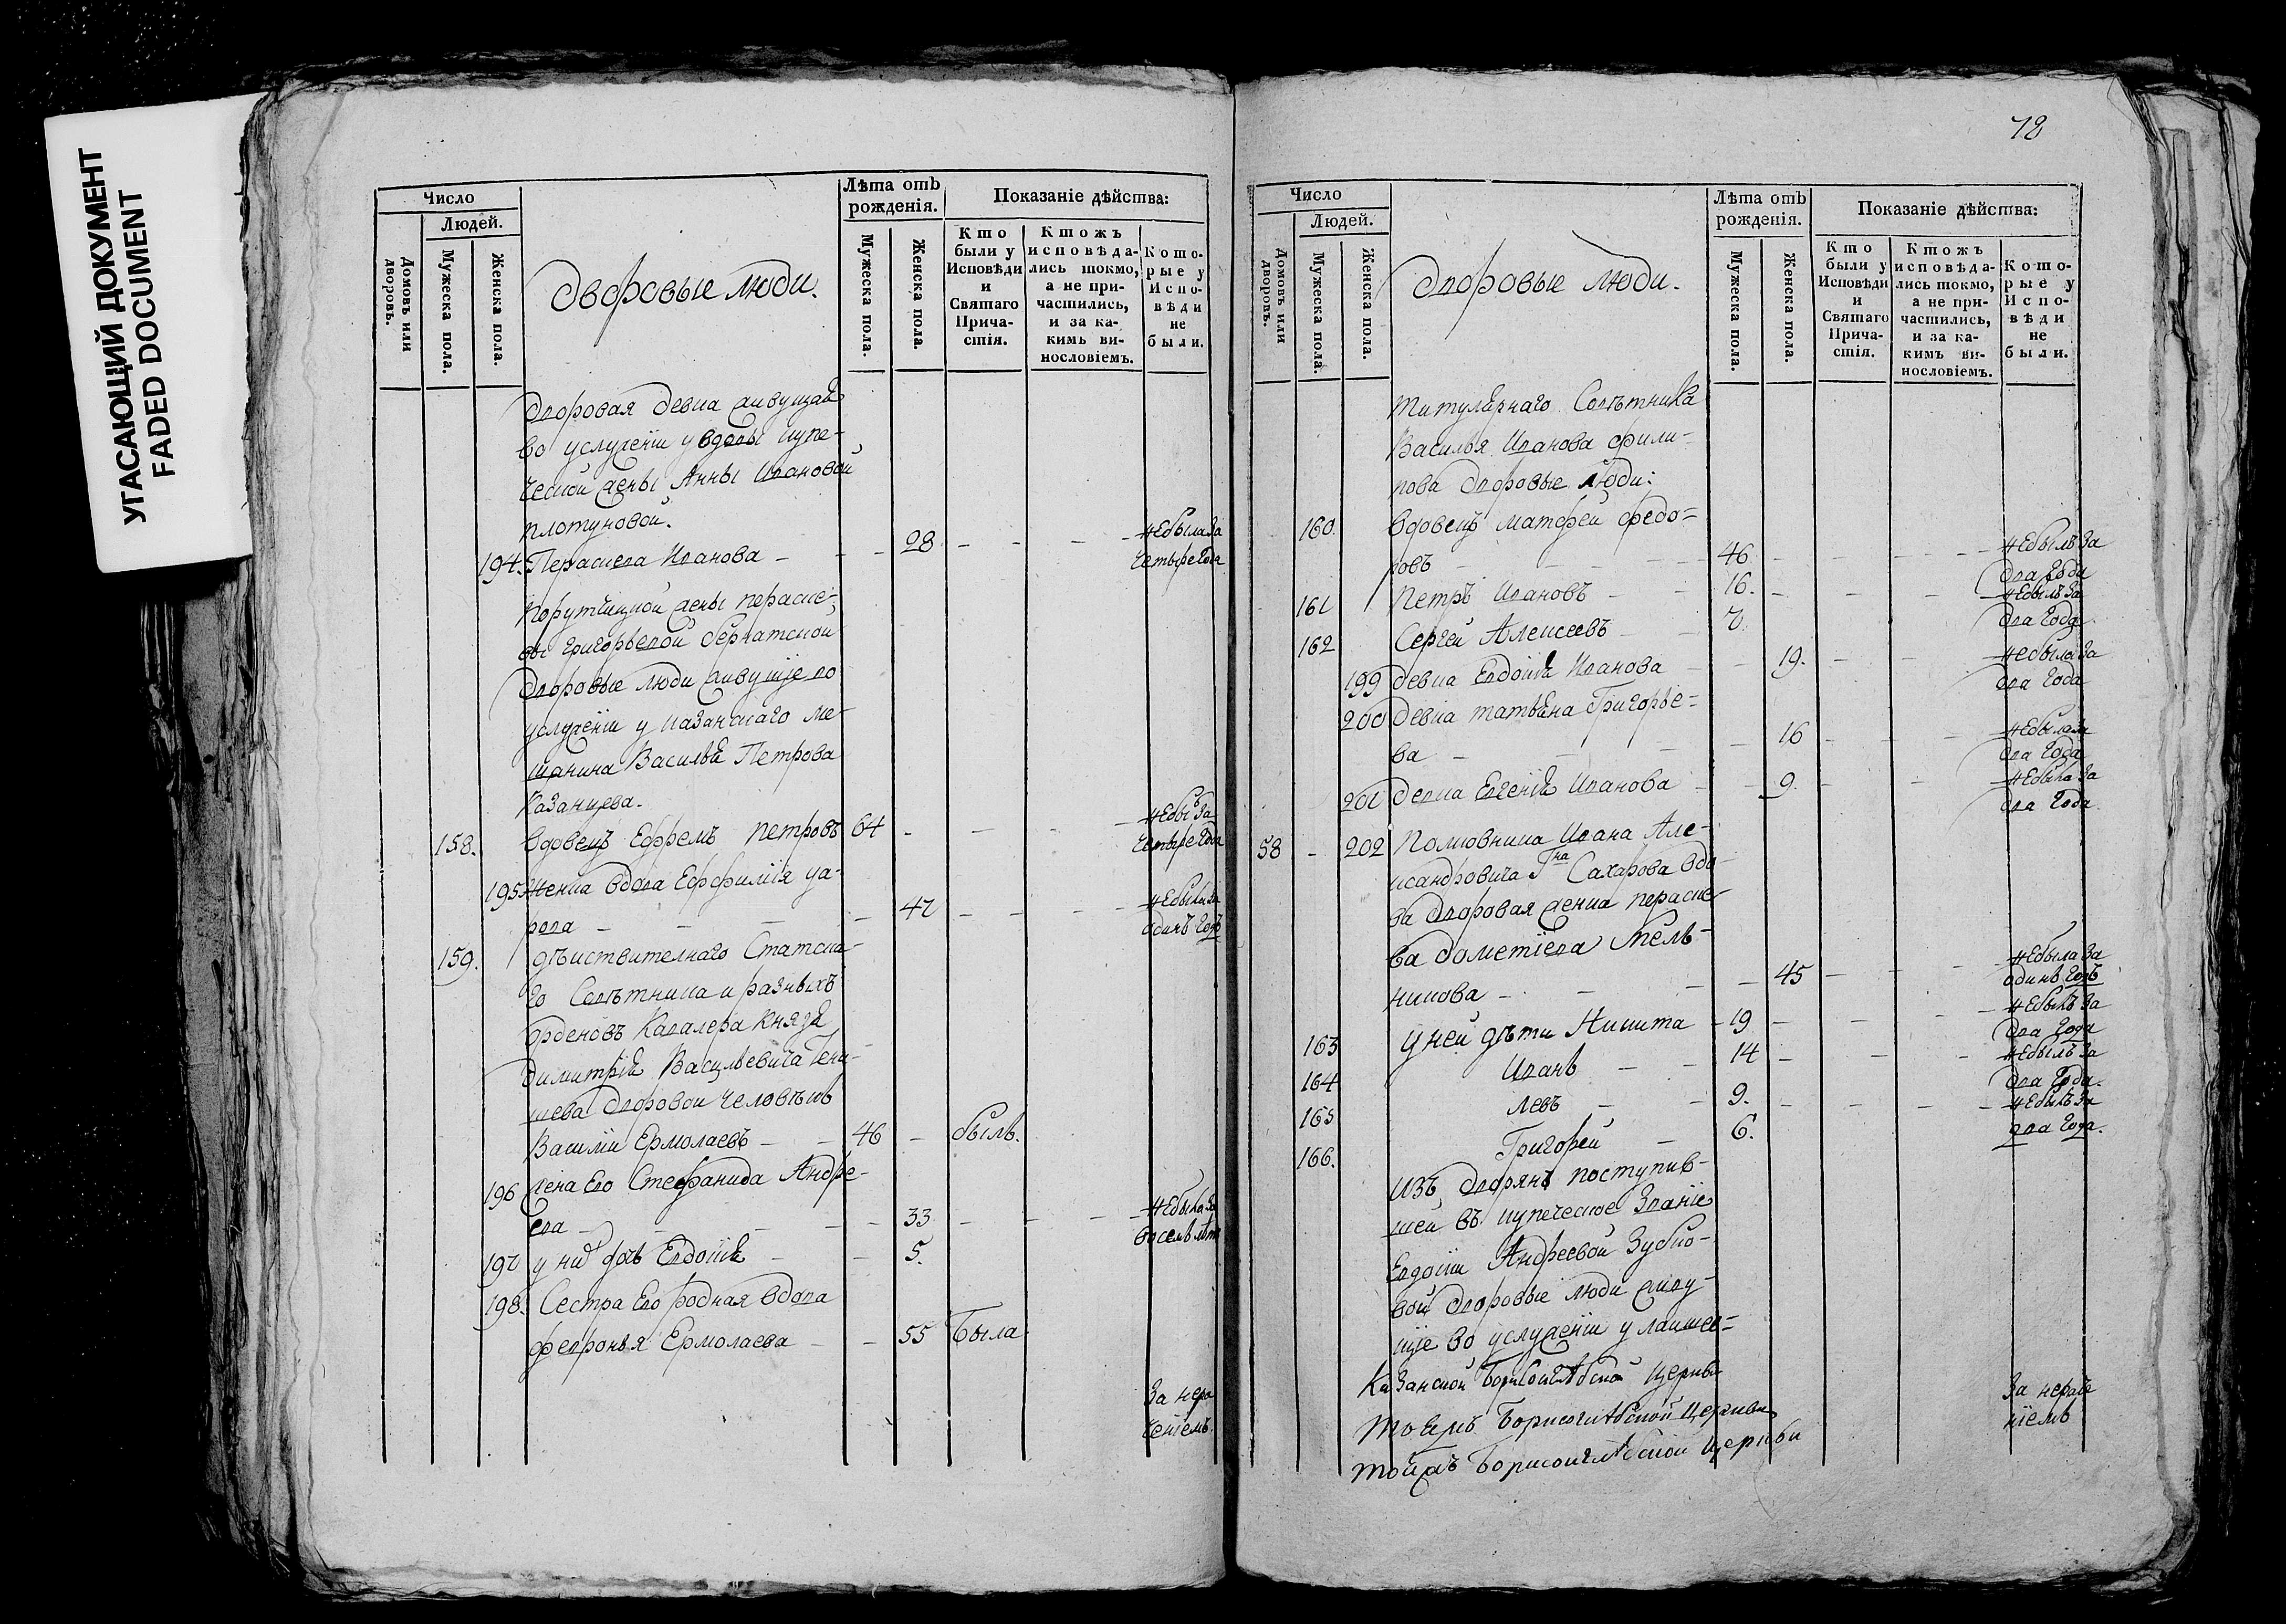 УГАСАЮЩИЙ ДОКУМЕНТ
FADED DOCUMENT
Число
Людей.
Домовъ или дворовъ.
Мужеска пола.
Женска пола.
Дворовые люди.
Лѣта отъ рожденія.
Мужеска пола.
Женска пола.
Показаніе дѣйства:
Кто были у Исповѣди и Святаго Причастія.
Ктожъ исповѣдались токмо, а не причастились, и за какимъ винословіемъ.
Которые у Исповѣди не были.
Дворовая девка живущая
во услуженіи у вдовы купе-
ческой жены Анны Ивановой
Плотуновой.
194. Перасковa Иванова - - 28 - - - не была за
четыре года
Порутчицкой жены Параске-
вы Григорьевой
Дворовые люди живущіе во
услуженіи у казанскаго ме-
щанина Василья Петрова
Казанцева.
158. вдовецъ Ефремъ Петровъ 64 - - - не былъ за
четыре года
195 Женка вдова Ефѳимія ѵа-
рова - - - 47 - - - не была за
одинъ годъ
159. дѣиствителнаго Статска-
го Совѣтника и разныхъ
орденовъ Кавалера Князя
Димитрія Васильевича Тени-
шева дворовой человѣкъ
Василіи Ермолаевъ - - 46 - былъ.
196 жена его Стефанида Андре-
ева - - - 33 - - - не была за
восемь лѣтъ
197 у них дочь Евдокія - - 5.
198. Сестра его родная вдова
Февронья Ермолаева - - 55 Была
За нера-
ченіемъ
72
Число
Людей.
Домовъ или дворовъ.
Мужеска пола.
Женска пола.
Дворовые люди.
Лѣта отъ рожденія.
Мужеска пола.
Женска пола.
Показаніе дѣйства:
Кто были у Исповѣди и Святаго Причастія.
Ктожъ исповѣдались токмо, а не причастились, и за какимъ винословіемъ.
Которые у Исповѣди не были.
Титулярнаго Совѣтника
Василья Иванова Фили-
пова дворовые люди:
160. вдовецъ Матфеи Федо-
ровъ - - - 46 - - - не былъ за
два года
161 Петръ Ивановъ - - 16. - - - не былъ за
два года
162 Сергеи Алексеевъ - - 7
199 девка Евдокія Иванова - - 19. - - не была за
два года
200 девка Татьяна Григорье-
ва - - - 16 - - - не была за
два года
201 девка Евгенія Иванова - - 9. - - не была за
два года
58 - 202 Полковника Ивана Але-
ксандровича Гна Сахарова вдо-
ва дворовая женка Параске-
ва Дометіева Мель-
никова - - - 45 - - - не была за
одинъ годъ
163 У ней дѣти Никита - 19 - - - не былъ за
два года
164 Иванъ - - 14 - - - не былъ за
два года
165 Левъ - - 9. - - - не былъ за
два года.
166. Григореи - 6.
Изъ дворянъ поступив-
шеи въ купеческое званіе
Евдокіи Андреевой Зубко-
вой дворовые люди живу-
щіе во услуженіи у лаишев-
Казанской Борисоглѣбской Церкви
Тоежъ Борисоглѣбской Церкви
Тойжъ Борисоглѣбской Церкви
За нераче-
ніемъ